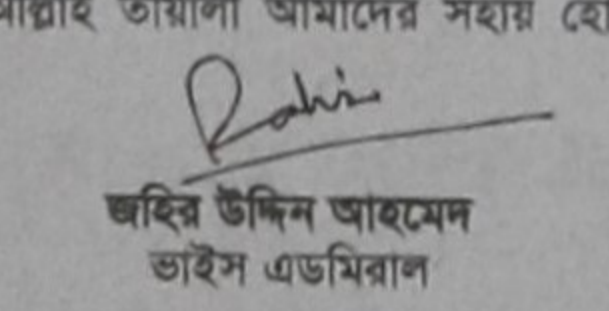 আল্লাহ তায়ালা আমাদের সহায় হো
Rahi
জহির উদ্দিন আহমেদ
ভাইস এডমিরাল